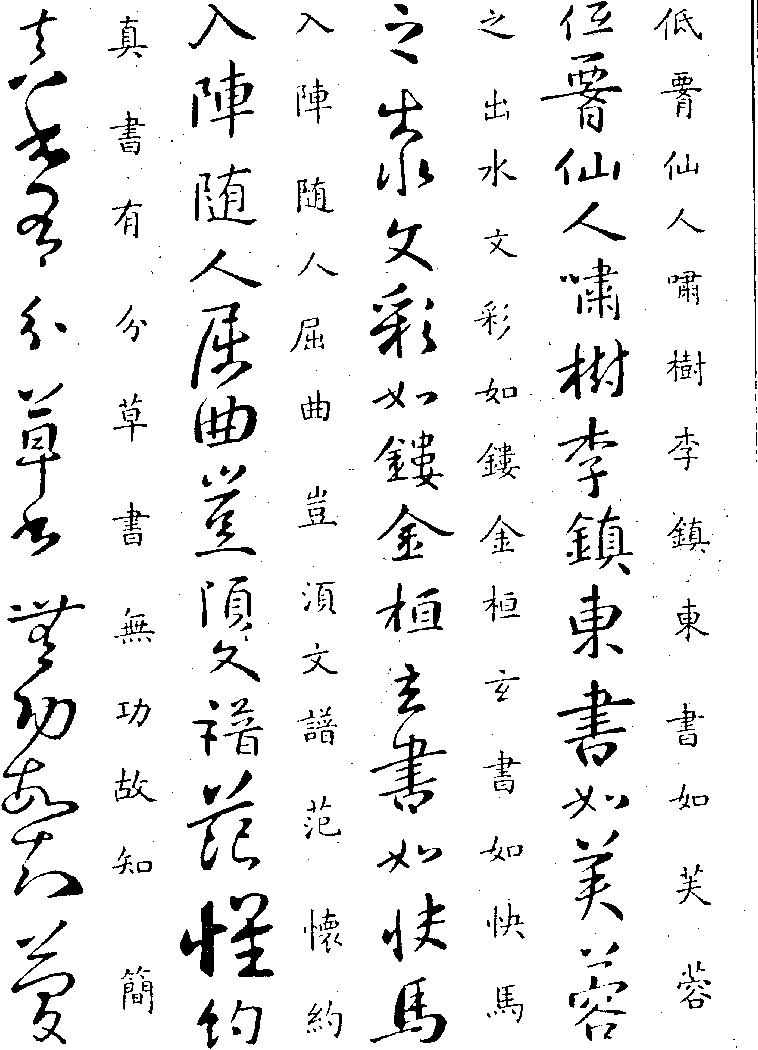 低腰仙人嘯樹李鎮東書如芙蓉
低腰仙人嘯樹李鎮東書如芙蓉
之出水文彩如鏤金桓玄書如快馬
之出水文彩如鏤金桓玄書如快馬
入陣随人屈曲豈湏文譜范懷約
入陣随人屈曲豈湏文譜范懷約
真書有分草書無功故知簡
真書有分草書無功故知簡